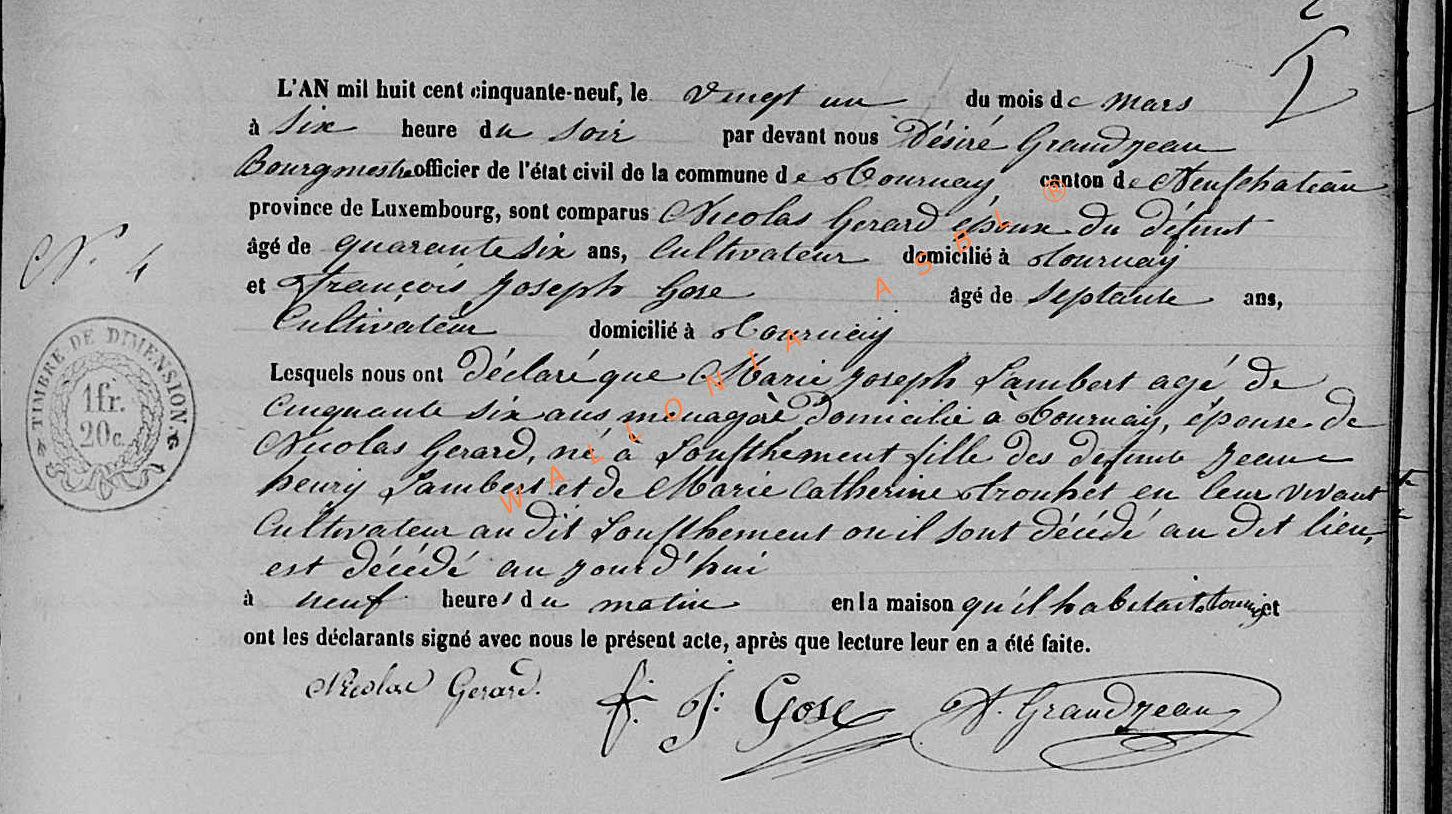 L'AN mil huit cent cinquante-neuf, le vingt un du mois de mars
à six heure du soir par devant nous Désiré Grandjean
Bourgmestre officier de l'état civil de la commune de Tournay canton de Neufchateau
province de Luxembourg, sont comparus Nicolas Gerard époux du défunt
âgé de quarante six ans, Cultivateur domicilié à Tournay
et François Joseph Gose âgé de septante ans,
Cultivateur domicilié à Tournay
N° 4
TIMBRE DE DIMENSION.
1fr.
20c.
Lesquels nous ont Déclaré que Marie Joseph Lambert agé de
Cinquante six ans menagère Domicilié à Tournay, épouse de
Nicolas Gerard, né à fille des defunt Jean
henry Lambert et de Marie Catherine en leur vivant
Cultivateur au dit ou il sont décédé au dit lieu,
est décédé au jourd'hui
à neuf heures du matin en la maison qu'il habitait à Tournay et
ont les déclarants signé avec nous le présent acte, après que lecture leur en a été faite.
Nicolas Gerard. f. J: Gose D. Grandjean
WALLONIA ASBL ®